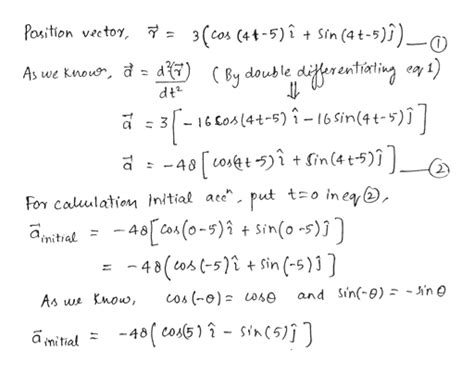 Position vector, r⃗ = 3(cos (4t-5) î + Sin (4t-5) ĵ) — ①
As we know, a⃗ = d²(r⃗)/dt² (By double differentiating eq 1)
⇓
a⃗ = 3[-16 cos(4t-5) î - 16 Sin(4t-5) ĵ]
a⃗ = -48 [cos(4t-5) î + Sin(4t-5) ĵ] — ②
For calculation Initial accⁿ, put t=0 in eq ②,
a⃗ initial = -48[Cos(0-5) î + Sin(0-5) ĵ]
= -48(cos(-5) î + Sin(-5) ĵ]
As we know, cos(-θ) = cosθ and Sin(-θ) = -sin θ
a⃗ initial = -48(cos(5) î - Sin(5) ĵ]